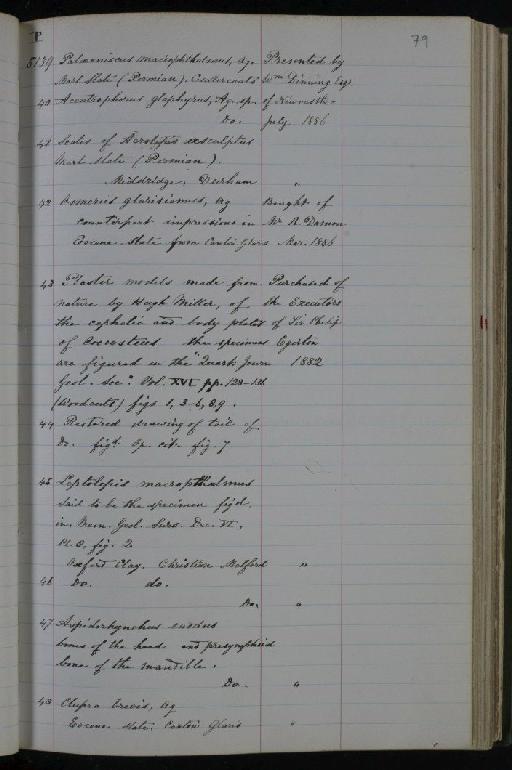 P.
79
5139 Palaeoniscus macrophthalmus, Ag. Presented by
Marl Slate (Permian). Wm Dinning Esq
40 Acentrophorus glaphyrus, Ag. sp. of Newcastle
Do. July 1886
41 Scales of Acrolepis exsculptus
Marl Slate (Permian).
Middridge, Durham "
42 Osmerus glarisianus, Ag Bought of
counterpart impressions in Mr R. Damon
Eocene Slate from Canton Glaris Mar. 1886
43 Plaster models made from Purchased of
nature by Hugh Miller, of the Executors
the cephalic and body plates of Sir Philip
of Coccosteus the specimens Egerton
are figured in the "Quart. Journ 1882
Geol. Soc". Vol. XVI pp. 128-
(Woodcuts) figs 1, 3-6, 8, 9.
44 Restored drawing of tail of
Do. figd. Op. cit. fig. 7
45 Leptolepis macropthalmus
Said to be the specimen figd.
in Mem. Geol. Surv. Dec. VI.
Pl. 8, fig. 2
Oxford Clay. Christian Malford "
46 Do. do.
Do. "
47 Aspidorhynchus euodus
bones of the head and presymphisid
bone of the mandible.
Do. "
48 Clupea brevis, Ag
Eocene Slate: Canton Glaris "